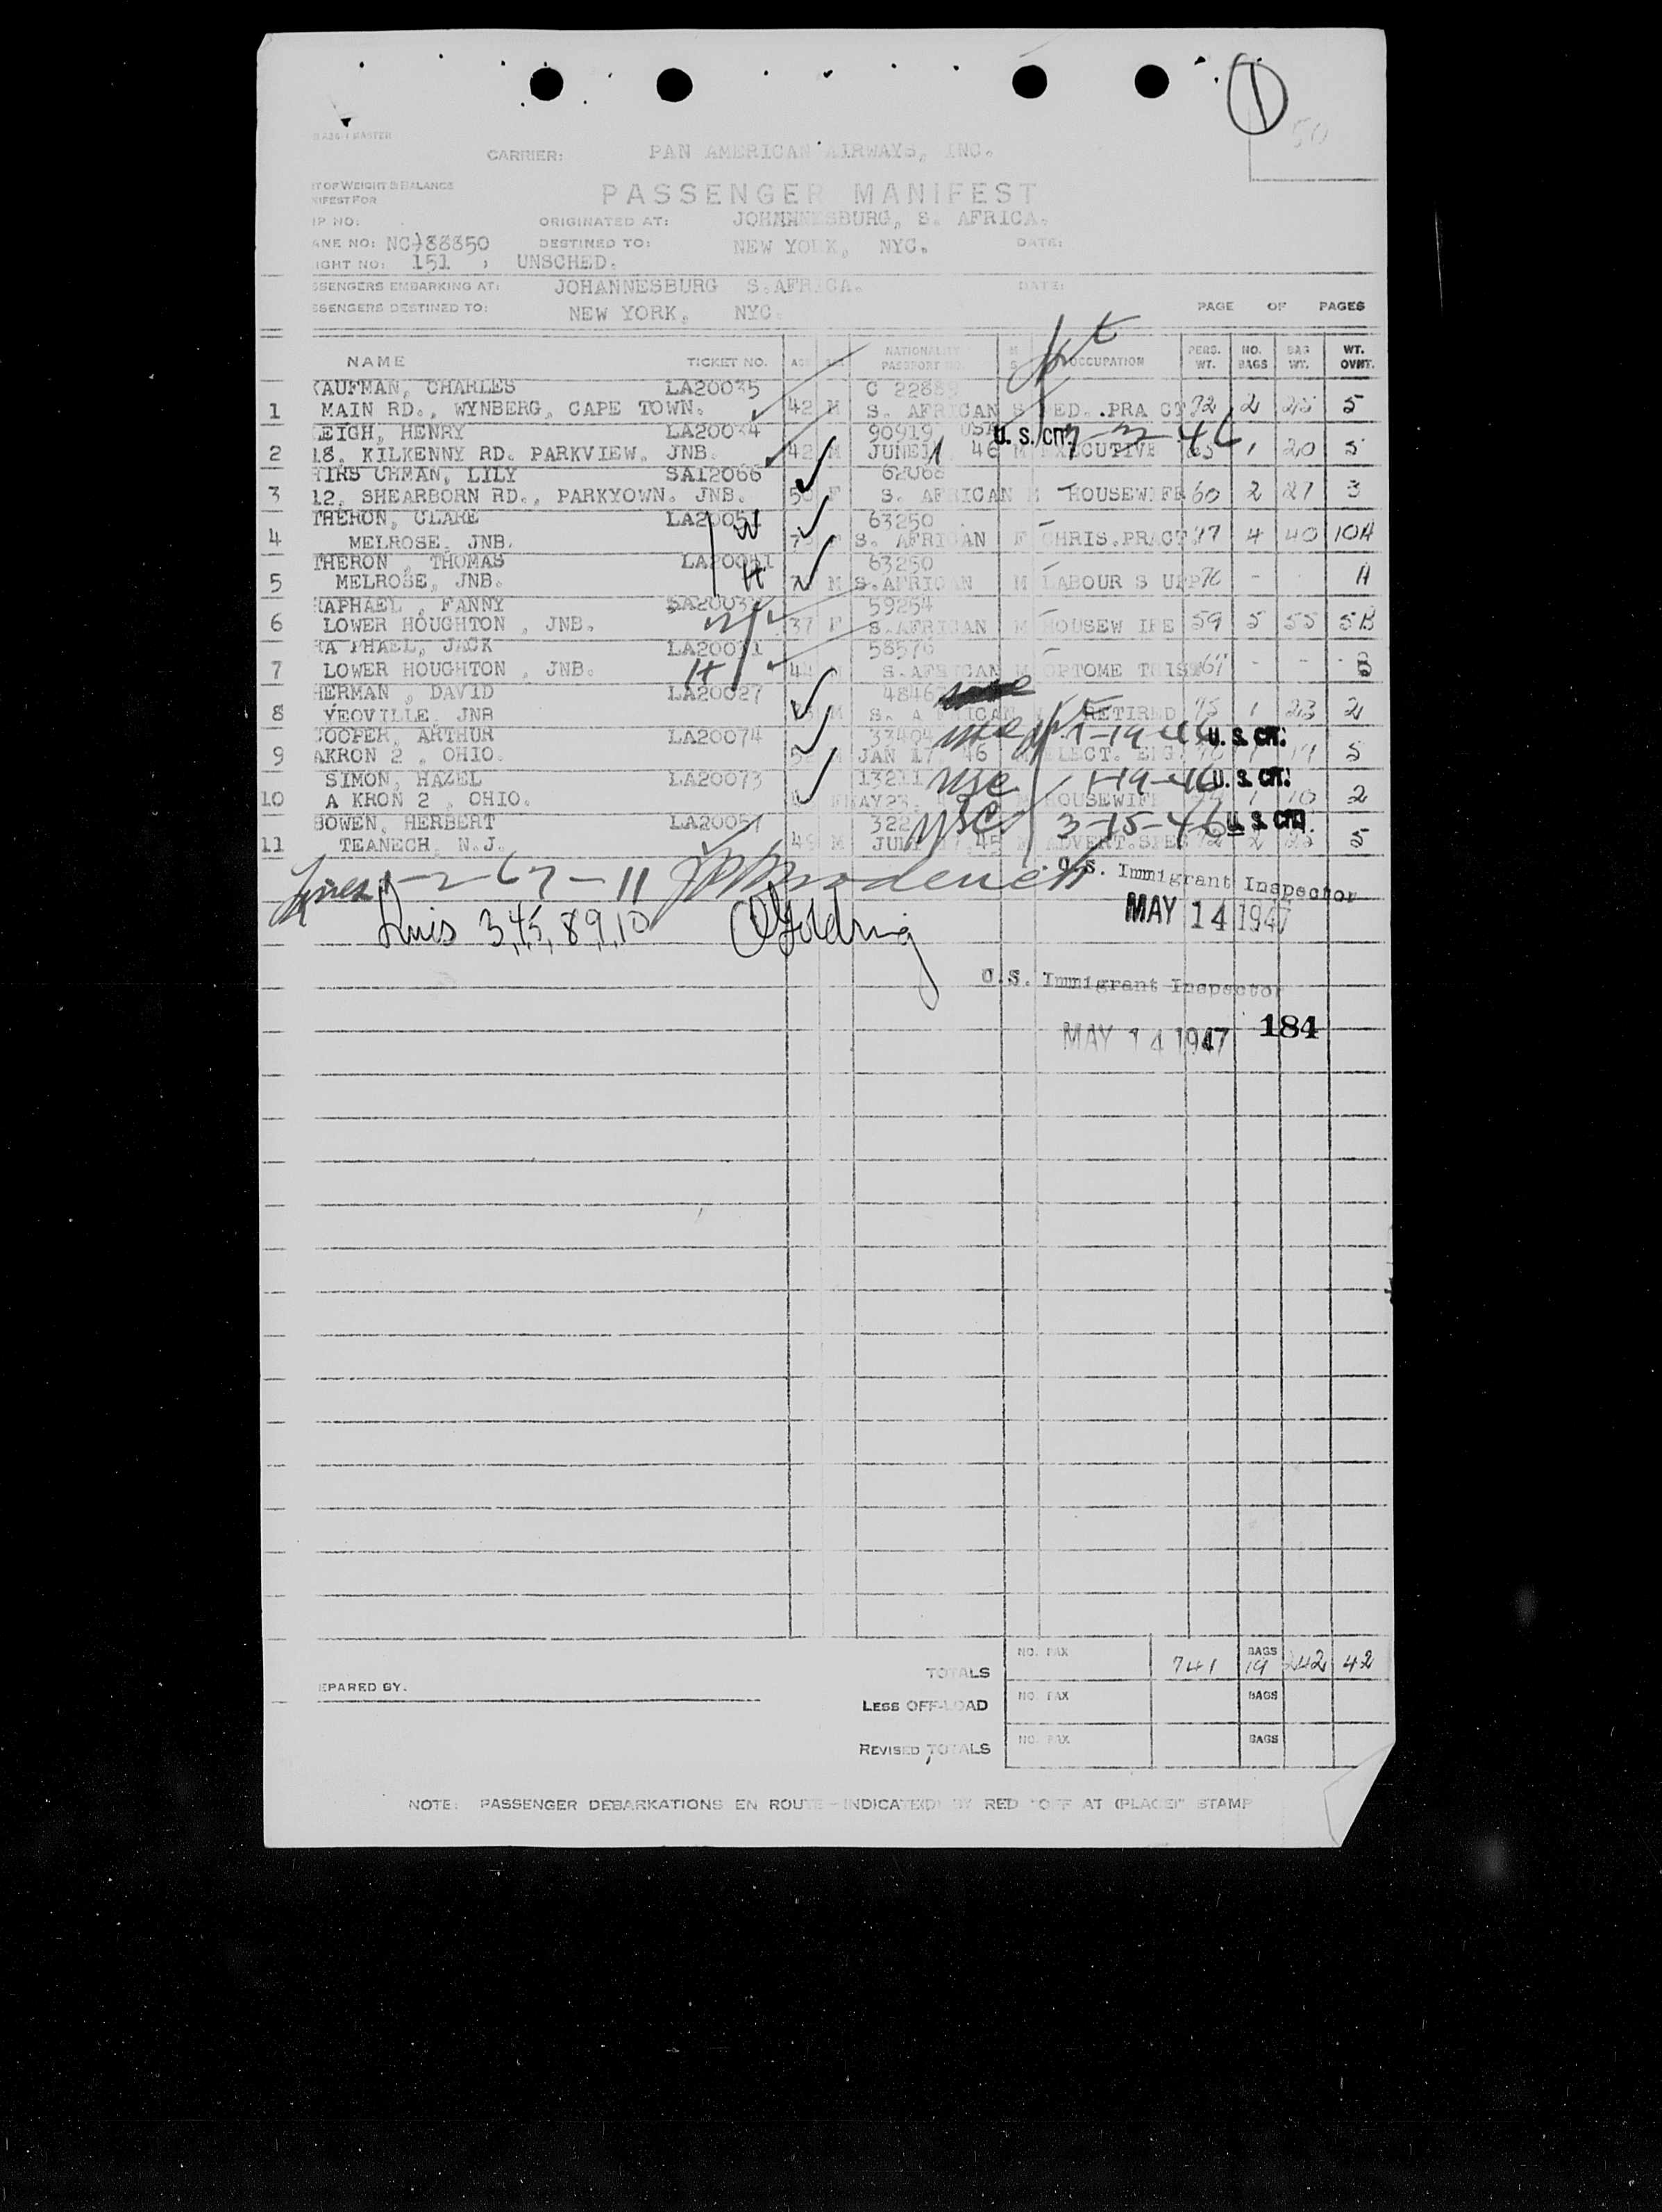 1
50
CARRIER: PAN AMERICAN AIRWAYS, INC.
T OF WEIGHT & BALANCE
NIFEST FOR
PASSENGER MANIFEST
IP NO: ORIGINATED AT: JOHANNESBURG, S. AFRICA.
ANE NO: NC 88850 DESTINED TO: NEW YORK, NYC. DATE:
IGHT NO: 151 , UNSCHED.
SSENGERS EMBARKING AT: JOHANNESBURG S.AFRICA. DATE:
SSENGERS DESTINED TO: NEW YORK, NYC. PAGE OF PAGES
NAME TICKET NO. AGE SEX NATIONALITY PASSPORT NO. M S OCCUPATION PERS. WT. NO. BAGS BAG WT. WT. OVNT.
KAUFMAN, CHARLES LA20035 C 2288
1 MAIN RD., WYNBERG, CAPE TOWN. 42 M S. AFRICAN S MED. .PRA CT. 72 2 25 5
LEIGH, HENRY LA20034 90919 USA U. S. CIT.
2 18, KILKENNY RD. PARKVIEW. JNB. 42 M JUNE 46 M EXECUTIVE 65 1 20 5
HIRS CHMAN, LILY SA12066 62068
3 12, SHEARBORN RD., PARKYOWN. JNB. 50 F S. AFRICAN M HOUSEWIFE 60 2 27 3
THERON, CLARE LA20051 W 63250
4 MELROSE, JNB. 7 F S. AFRICAN F CHRIS.PRACT. 77 4 40 10A
THERON , THOMAS LA20051 H 63250
5 MELROSE, JNB. M S.AFRICAN M LABOUR S UPP 76 - A
RAPHAEL , FANNY SA2003 59254
6 LOWER HOUGHTON , JNB. 37 F S.AFRICAN M HOUSEW IFE 59 5 55 5B
RA PHAEL, JACK LA20031 58576
7 LOWER HOUGHTON , JNB. H 4 M S.AFRICAN M OPTOME TRIST 67 - - - B
HERMAN , DAVID LA20027 4846
8 YEOVILLE, JNB M S. A FRICAN RETIRED 75 1 23 2
COOPER, ARTHUR LA20074 33404 1-19-46 U. S. CIT.
9 AKRON 2 , OHIO. 52 M JAN 17, 46 M ELECT. ENG. 5
SIMON, HAZEL LA20073 13211 usc 1-19-46 U. S. CIT.
10 A KRON 2 , OHIO. F MAY23, HOUSEWIFE 1 10 2
BOWEN, HERBERT LA20051 322 usc 3-15-46 U. S. CIT.
11 TEANECH, N.J. 49 M JULY 17,45 M ADVERT.SPES 72 2 5
Lines 1-2-67-11 U.S. Immigrant Inspector
MAY 14 1947
Lines 3,4,5, 8,9,10 Goldring
U.S. Immigrant Inspector
MAY 14 1947 184
TOTALS NO. PAX 741 BAGS 19 242 42
EPARED BY.
LESS OFF-LOAD NO. PAX BAGS
REVISED TOTALS NO. PAX BAGS
NOTE: PASSENGER DEBARKATIONS EN ROUTE - INDICATE(D) BY RED "OFF AT (PLACE)" STAMP